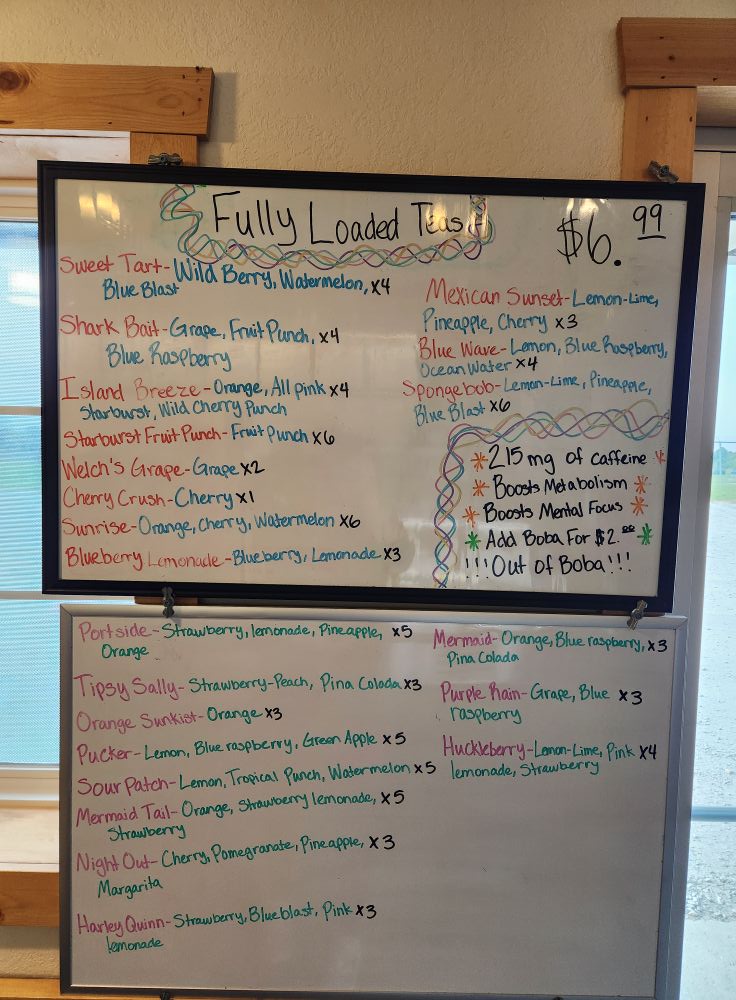 Fully Loaded Teas
$6.99
Sweet Tart- Wild Berry, Watermelon, x4
Blue Blast
Shark Bait- Grape, Fruit Punch, x4
Blue Raspberry
Island Breeze- Orange, All pink x4
Starburst, Wild Cherry Punch
Starburst Fruit Punch- Fruit Punch x6
Welch's Grape- Grape x2
Cherry Crush- Cherry x1
Sunrise- Orange, Cherry, Watermelon x6
Blueberry Lemonade- Blueberry, Lemonade x3
Mexican Sunset- Lemon-Lime,
Pineapple, Cherry x3
Blue Wave- Lemon, Blue Raspberry,
Ocean Water x4
Spongebob- Lemon-Lime, Pineapple,
Blue Blast x6
*215 mg of caffeine *
* Boosts Metabolism *
* Boosts Mental Focus *
* Add Boba For $2.00 *
!!!Out of Boba!!!
Portside- Strawberry, lemonade, Pineapple, x5
Orange
Tipsy Sally- Strawberry-Peach, Pina Colada x3
Orange Sunkist- Orange x3
Pucker- Lemon, Blue raspberry, Green Apple x5
Sour Patch- Lemon, Tropical Punch, Watermelon x5
Mermaid Tail- Orange, Strawberry lemonade, x5
Strawberry
Night Out- Cherry, Pomegranate, Pineapple, x3
Margarita
Harley Quinn- Strawberry, Blue blast, Pink x3
lemonade
Mermaid- Orange, Blue raspberry, x3
Pina Colada
Purple Rain- Grape, Blue x3
raspberry
Huckleberry- Lemon-Lime, Pink x4
lemonade, Strawberry